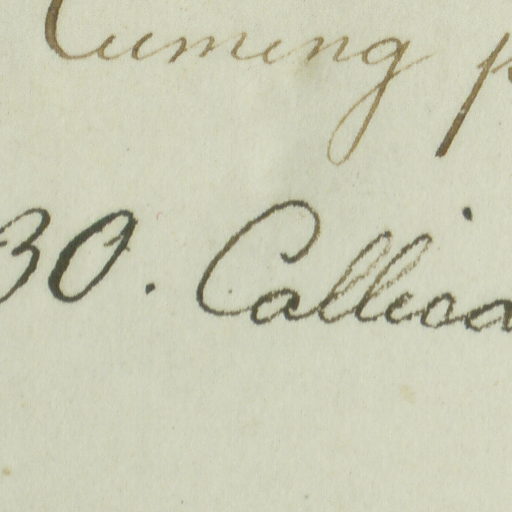 Cuming p
30. Callica